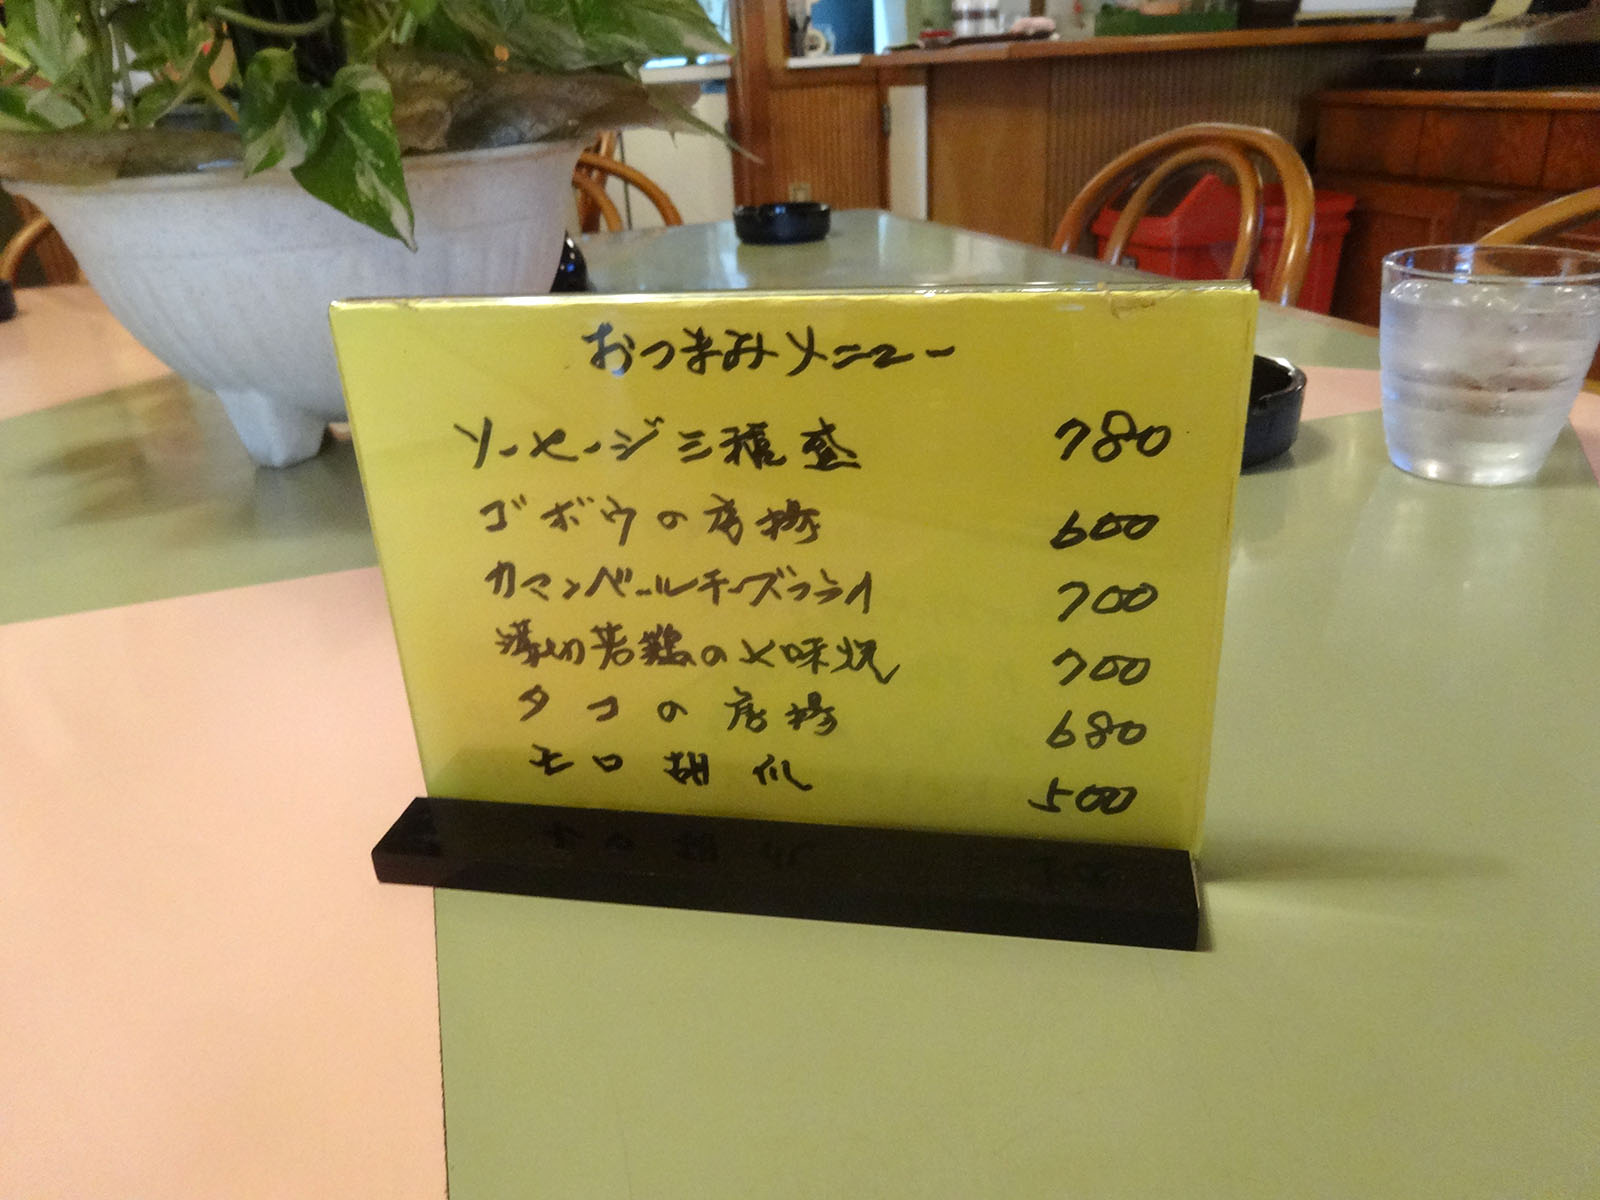 おつまみメニュー
ソーセージ三種盛 780
ゴボウの唐揚 600
カマンベールチーズフライ 700
薄切若鶏の七味焼 700
タコの唐揚 680
モロ胡瓜 500